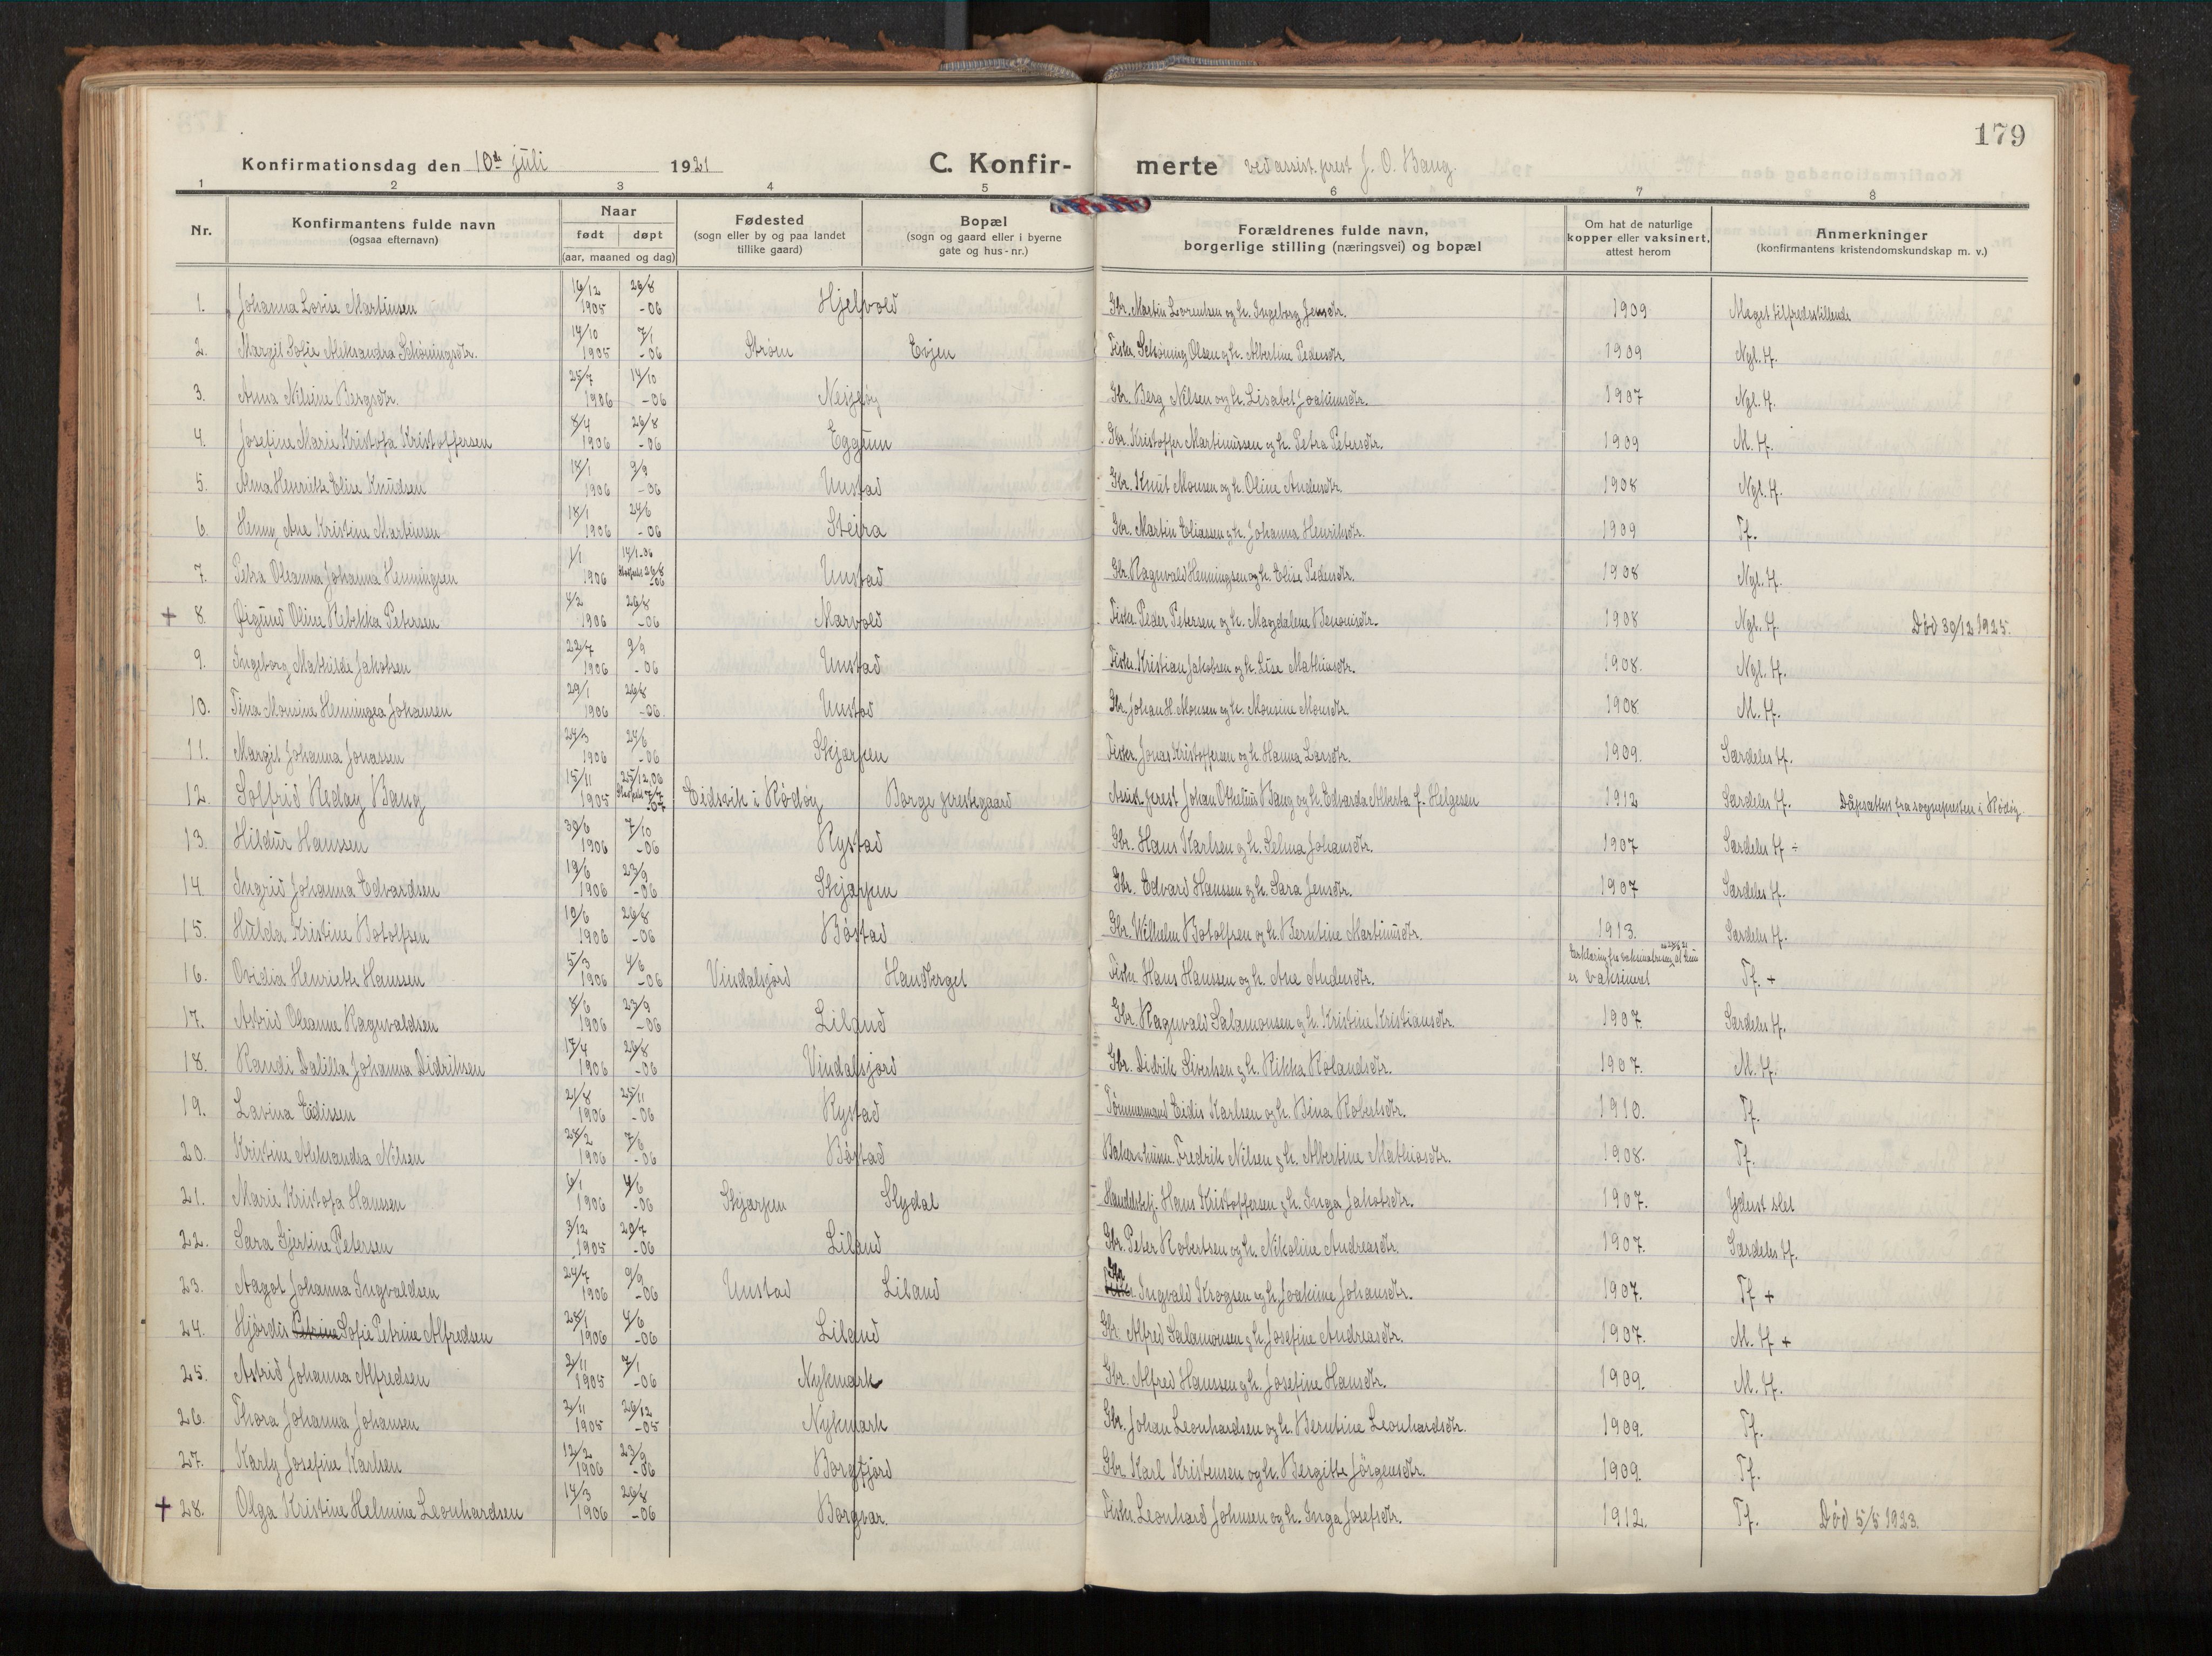 179
Konfirmationsdag den 10de juli 1921 C. Konfir- merte ved assist. prest J. O. Bang.
1 2 3 4 5 6 7 8
Nr. Konfirmantens fulde navn (ogsaa efternavn) Naar født døpt (aar, maaned og dag) Fødested (sogn eller by og paa landet tillike gaard) Bopæl (sogn og gaard eller i byerne gate og hus-nr.) Forældrenes fulde navn, borgerlige stilling (næringsvei) og bopæl Om hat de naturlige kopper eller vaksinert, attest herom Anmerkninger (konfirmantens kristendomskundskap m. v.)
1. Johanna Lovise Martinsen 16/12 1905 26/8 -06 Hjelvold Gbr. Martin Lorentsen og h. Ingeborg Jensdtr. 1909 Meget tilfredsstillende
2. Margit Sofie Aleksandra Schöningsdtr. 14/10 1905 7/1 -06 Strøm Evjen Fisker Schöning Olsen og h. Albertine Pedersdtr. 1909 Ngl. tf.
3. Anna Nilsine Bergsdtr. 25/7 1906 14/10 -06 Nesje Gbr. Berg Nilsen og h. Lisabet Joakimsdtr. 1907 Ngl. tf.
4. Josefine Marie Kristofa Kristoffersen 8/4 1906 26/8 -06 Eggum Gbr. Kristoffer Martinussen og h. Petra Petersdtr. 1909 M. tf.
5. Alma Henriette Elise Knudsen 18/1 1906 9/9 -06 Unstad Gbr. Knut Monsen og h. Oline Andersdtr. 1908 Ngl. tf.
6. Henny Ane Kristine Martinsen 18/1 1906 24/6 -06 Steira Gbr. Martin Eliassen og h. Johanna Henriksdtr. 1909 Tf.
7. Petra Oleanna Johanna Henningsen 1/1 1906 14/1-06 Stadfestet 26/8 -06 Unstad Gbr. Ragnvald Henningsen og h. Elise Pedersdtr. 1908 Ngl. tf.
+ 8. Øigund Oline Ribekka Petersen 4/2 1906 26/8 -06 Marvold Fisker Peder Petersen og h. Magdalene Benonisdtr. 1908 Ngl. tf. Død 30/12 1925.
9. Ingeborg Mathilde Jakobsen 22/7 1906 9/9 -06 Unstad Fisker Kristian Jakobsen og h. Lise Mathiasdtr. 1908. Ngl. tf.
10. Tina Monsine Henningea Johansen 29/1 1906 26/8 -06 Unstad Gbr. Johan H. Monsen og h. Monsine Monsdtr. 1908 M. tf.
11. Margit Johanna Jonassen 24/3 1906 24/6 -06 Skjarpen Fisker. Jonas Kristoffersen og h. Hanna Larsdtr. 1909. Særdeles tf.
12. Solfrid Redag Bang 15/11 1905 25/12.06 Stadfestet 7/7 -07 Eidsvik i Rödöy Borge prestegaard Assist. prest Johan Othelius Bang og h. Edvarda Alberta f. Helgesen 1912 Særdeles tf. Dåpsattest fra sognepresten i Rödöy.
13. Hildur Hanssen 30/6 1906 7/10 -06 Rystad Gbr. Hans Karlsen og h. Selma Johansdtr. 1907 Særdeles tf ÷
14. Ingrid Johanna Edvardsen 19/6 1906 23/9 -06 Skjarpen Gbr. Edvard Hanssen og h. Sara Jensdtr. 1907 Særdeles tf.
15. Hulda Kristine Botolfsen 10/6 1906 26/8 -06 Böstad Gbr. Wilhelm Botolfsen og h. Berntine Martinusdtr. 1913. Særdeles tf.
16. Ovidia Henriette Hanssen 5/3 1906 4/6 -06 Vindalsjord Handberget Fisker Hans Hanssen og h. Ane Andersdtr. Erklæring fra vaksinatricen at hun er vaksineret Tf. +
17. Astrid Oleanne Ragnvaldsen 8/6 1906 23/9 -06 Liland Gbr. Ragnvald Salamonsen og h. Kristine Kristiansdtr. 1907. Særdeles tf.
18. Randi Dalilla Johanna Didriksen 17/4 1906 26/8 -06 Vindalsjord Gbr. Didrik Sivertsen og h. Rikka Rolandsdtr. 1907. M. tf.
19. Lavina Eidissen 21/8 1906 25/11 -06 Rystad Tömmermand Eidis Karlsen og h. Bina Robertsdtr. 1910. Tf.
20. Kristine Aleksandra Nilsen 28/2 1906 7/6 -06 Böstad Baker Fredrik Nilsen og h. Albertine Mathiasdtr. 1908. Tf.
21. Marie Kristofa Hanssen 6/1 1906 4/6 -06 Skjarpen Slydal Handelsbetj. Hans Kristoffersen og h. Inga Jakobsdtr. 1907. Yderst slet
22. Sara Gjertine Petersen 3/12 1905 29/7 -06 Liland Gbr. Peter Robertsen og h. Nikoline Andreasdtr. 1907. Særdeles tf.
23. Aagot Johanna Ingvaldsen 24/7 1906 9/9 -06 Unstad Liland Gbr Ingvald Krogsen og h. Joakine Johansdtr. 1907. Tf +
24. Hjördis Petrine Sofie Petrine Alfredsen 28/1 1906 4/6 -06 Liland Gbr. Alfred Salamonsen og h. Josefine Andreasdtr. 1907. M. tf +
25. Astrid Johanna Alfredsen 2/11 1905 7/1 -06 Nykmark Gbr. Alfred Hanssen og h. Josefine Hansdtr. 1909. M. tf.
26. Thora Johanna Johansen 2/11 1905 26/12 -05 Nykmark Gbr. Johan Leonhardsen og h. Berntine Leonhardsdtr. 1909. Tf.
27. Karly Josefine Karlsen 12/2 1906 23/9 -06 Borgfjord Gbr. Karl Kristensen og h. Bergitte Jörgensdtr. 1909. Tf.
+ 28. Olga Kristine Helmine Leonhardsen 14/3 1906 26/8 -06 Borgvar. Fisker Leonhard Johnsen og h. Inga Josefsdtr. 1912. Tf. Död 5/5 1923.